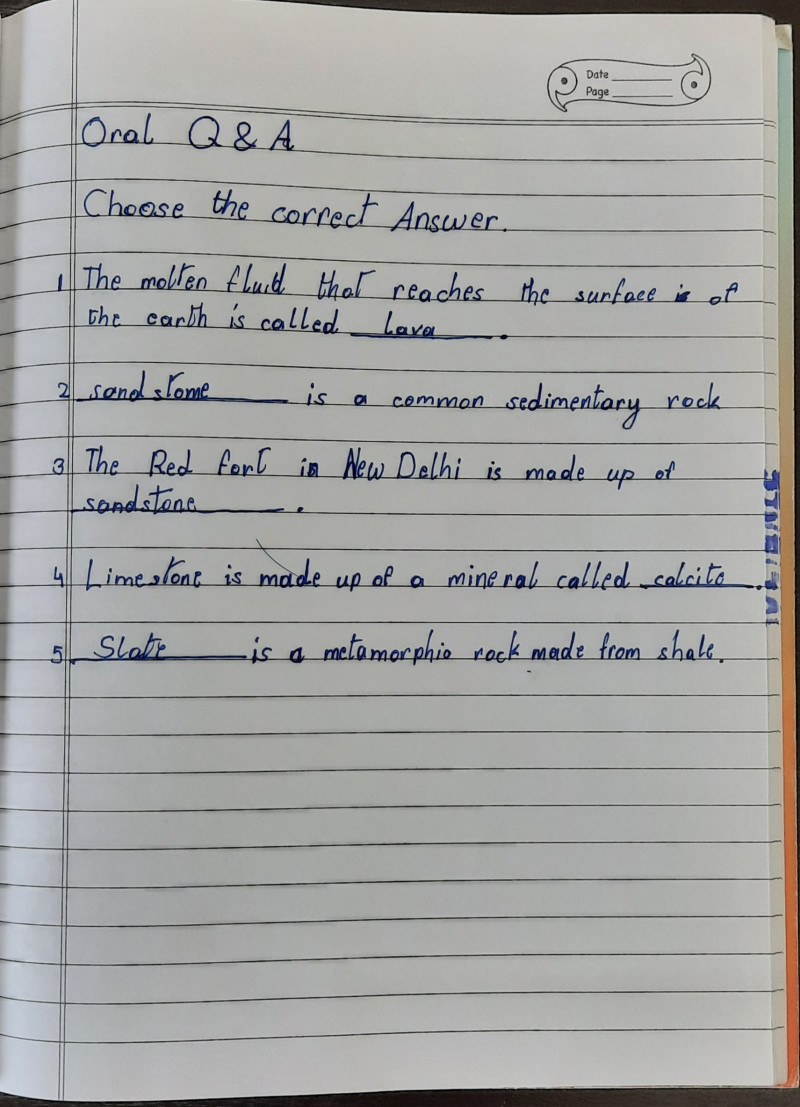 Date
Page
Oral Q & A
Choose the correct Answer.
1 The molten fluid that reaches the surface is of
the earth is called Lava.
2 sandstome is a common sedimentary rock
3 The Red fort in New Delhi is made up of
sandstone.
4 Limestone is made up of a mineral called calcite.
5 Slate is a metamorphic rock made from shale.